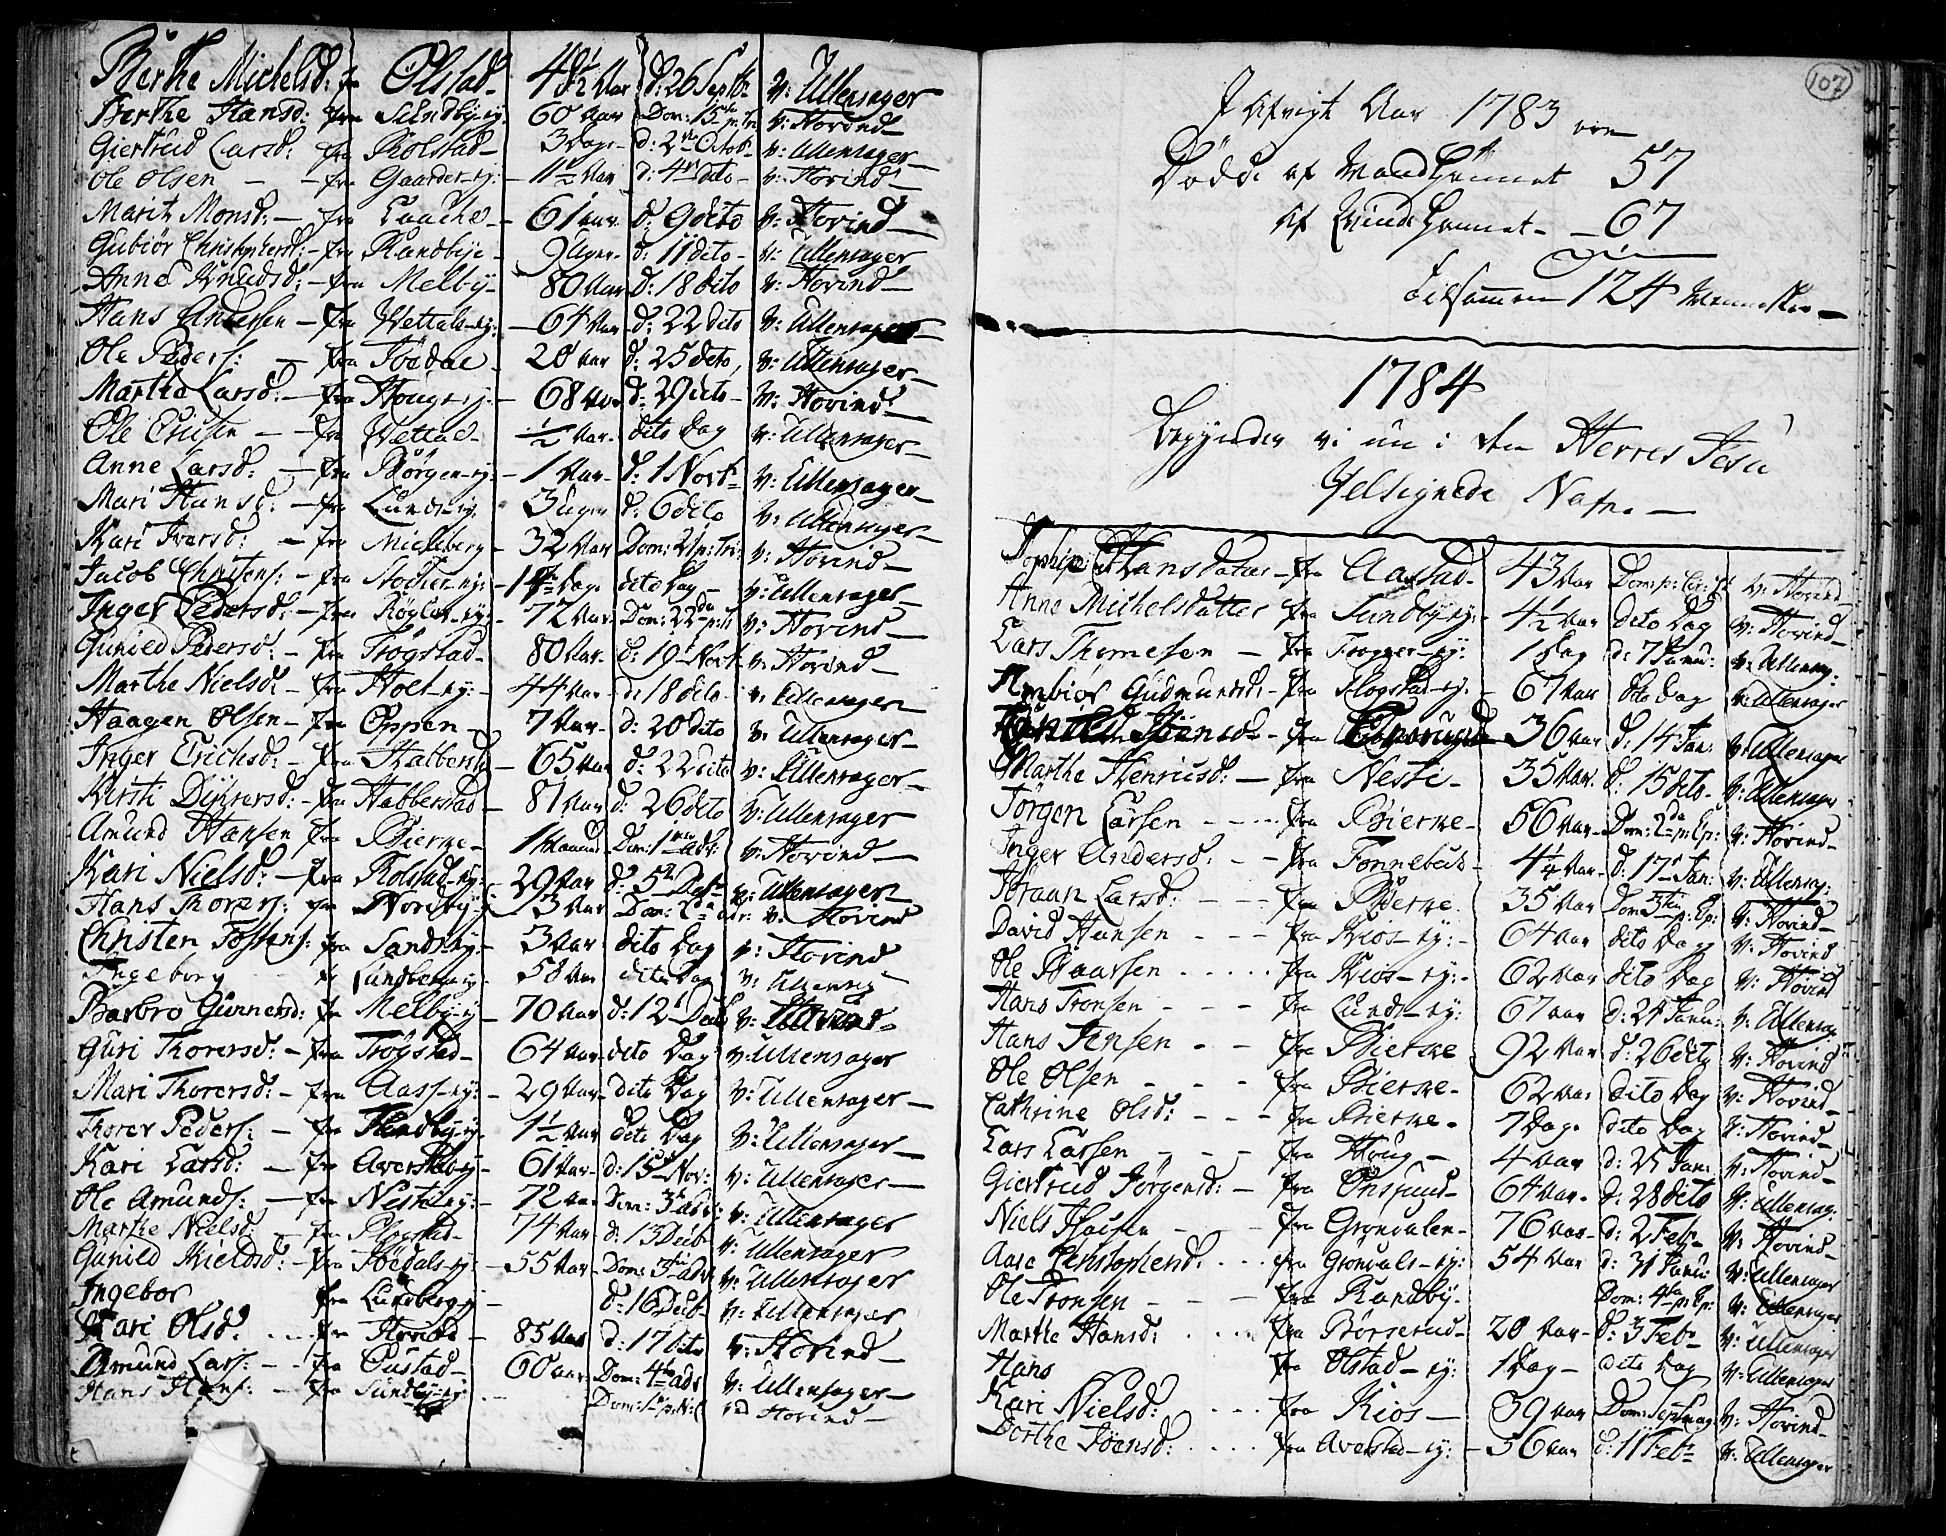 Berthe Michelsd: fra Olstad 48½ Aar d: 26 Septb: v: Ullensager
Berthe Hansd: fra Sundby-ey: 60 Aar Dom: 15 p: Tri v: Hovind
Giertrud Larsd: fra Rolstad 3 Dage d: 2 Octob: v: Ullensager
Ole Olsen fra Gaarder-ey: 1½ Aar d: 4 dito v: Hovind
Marit Monsd: fra Laache 61 aar d: 9 dito v: Hovind
Gubiör Christophersd: fra Randbye 9 Uger d: 11 dito v: Ullensager
Anne Knudsd: fra Melby 80 Aar d: 18 dito v: Hovind
Hans Andersen fra Wettals-ey: 64 Aar d: 22 dito v: Ullensager
Ole Peders: fra Jödal 28 Aar d: 25 dito v: Ullensager
Marthe Larsd: fra Houg-ey: 68 Aar d: 29 dito v: Hovind
Ole Erichsen fra Wettal ½ Aar dito Dag v: Ullensager
Anne Larsd: fra Börgen-ey: 1 Aar d: 1 Novb: v: Ullensager
Mari Hansd: fra Lunds-ey: 3 uger d: 6 dito v: Ullensager
Kari Ivarsd: fra Mickeberg 32 Aar Dom: 21 p: Tri: v: Hovind
Jacob Christens: fra ey: 14 Dage dito Dag v: Ullensager
Inger Pedersd: fra ey: 77 Aar Dom: 22 p: Tr v: Hovind
Gunild Pedersd: fra Trögstad 80 Aar d: 19 Novb: v: Hovind
Marthe Nielsd: fra Holt-ey: 44 Aar d: 18 dito v: Ullensager
Haagen Olsen fra Oppen 7 Aar d: 20 dito v: Ullensager
Inger Erichsd: fra Halberstad 65 Aar d: 22 dito v: Ullensager
Kirsti fra Habberstad 81 Aar d: 26 dito v: Ullensager
Amund Hansen fra Bierke 1 Maaned Dom: 1 adv: v: Hovind
Kari Nielsd: fra Rolstad-ey: 29 Aar d: 5 Decb: v: Ullensager
Hans Thorers: fra Nordby 3 Aar Dom: 2 adv: v: Hovind
Christen Tostens: fra Sands-ey: 3 Aar dito Dag v: Hovind
Ingeborg fra Lundberg-ey: 58 Aar dito Dag v: Ullensag
Barbro Gunnersd: fra Melby-ey 70 Aar d: 12 Decb: v: Hovind
Guri Thorersd: fra Trögstad 64 Aar dito Dag v: Ullensager
Mari Thorersd: fra Aass-ey: 29 Aar dito Dag v: Ullensager
Thorer Peders: fra Sundby-ey: 1½ Aar dito Dag v: Ullensager
Kari Larsd: fra Averstad-ey: 61 Aar d: 15 Nov: v: Ullensager
Ole Amunds: fra Nestie-ey: 72 aar Dom: 3 adv: v: Ullensager
Marthe Nielsd: fra Flogstad 74 Aar d: 13 Decb: v: Ullensager
Gunild Kieldsd: fra Jöedals-ey 55 Aar Dom: 3 adv v: Ullensager
Ingebor fra Lundberg-ey d: 16 Decb: v: Ullensager
Kari Olsd: fra 85 Aar d: 17 dito v: Hovind
Amund Lars: fra Gustad 60 aar Dom: 4 adv v: Ullensager
Hans Hans: fra Sundby-ey Dom: v: Hovind
107
I Afvigt Aar 1783 ere
Dödde af Mandkiönnet 57
af Qvindekiönnet 67
tilsammen 124 Mennisker
1784
Begynder vi nu i den Herres Jesu
Velsignede Nafn.
Hansdatter fra Aastad 43 Aar Dom: v: Hovind
Anne Michelsdatter fra Sundby-ey: 4½ Aar dito Dag v: Hovind
Lars Thomesen fra Fragger-ey: 1 Dag d: 7 Janu: v: Ullensag:
Gudmundsd: fra Flogstad-ey: 67 Aar dito Dag v: Ullensager
Gunild Jöensd: fra 36 Aar d: 14 Jan: v: Ullensager
Marthe Henricsd: fra Nesti 35 Aar. d: 15 dito v: Ullensager
Jörgen Larsen fra Bierke 56 Aar Dom: 2 p: Ep: v: Hovind
Inger Andersd: fra Tonneback 4¼ Aar d: 17 Jan: v: Ullensag:
Joraan Larsd: fra Bierke 35 Aar Dom: 3 p: Ep: v: Hovind
David Hansen fra Kios-ey: 64 Aar dito Dag v: Hovind
Ole Haarsen fra Kios-ey: 62 Aar dito Dag v: Hovind
Hans Tronsen fra Lunds-ey: 67 aar d: 24 Janu: v: Ullensag:
Hans Jensen fra Bierke 92 Aar d: 26 dito v: Hovind
Ole Olsen fra Bierke 62 Aar dito Dag v: Hovind
Cathrine Olsd: fra Bierke 7 Dage dito Dag v: Hovind
Lars Larsen fra Houg 4 Aar d: 27 Jan: v: Hovind
Giertrud Jörgensd: fra Onsrud 64 Aar d: 28 dito v: Ullensag:
Niels fra Gröndalen 76 Aar d: 2 Feb: v: Hovind
Aase Christophersd: fra Gröndals-ey: 54 Aar d: 31 Janu: v: Ullensager
Ole Tronsen fra Randby Dom: 4 p: Ep: v: Ullensager
Marthe Hansd: fra Börserud 28 Aar d: 3 Feb: v: Ullensager
Hans fra Olstad-ey: 1 Dag dito Dag v: Ullensager
Kari Nielsd: fra Kios 39 Aar Dom: Septuag: v: Hovind
Dorthe Jöensd: fra Averstad-ey: 56 Aar d: 11 Feb: v: Ullensager